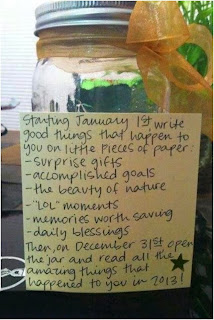 Starting January 1st write
good things that happen to
you on little pieces of paper:
-surprise gifts
-accomplished goals
-the beauty of nature
-"LOL" moments
-memories worth saving
-daily blessings
Then, on December 31st open
the jar and read all the
amazing things that
happened to you in 2013!